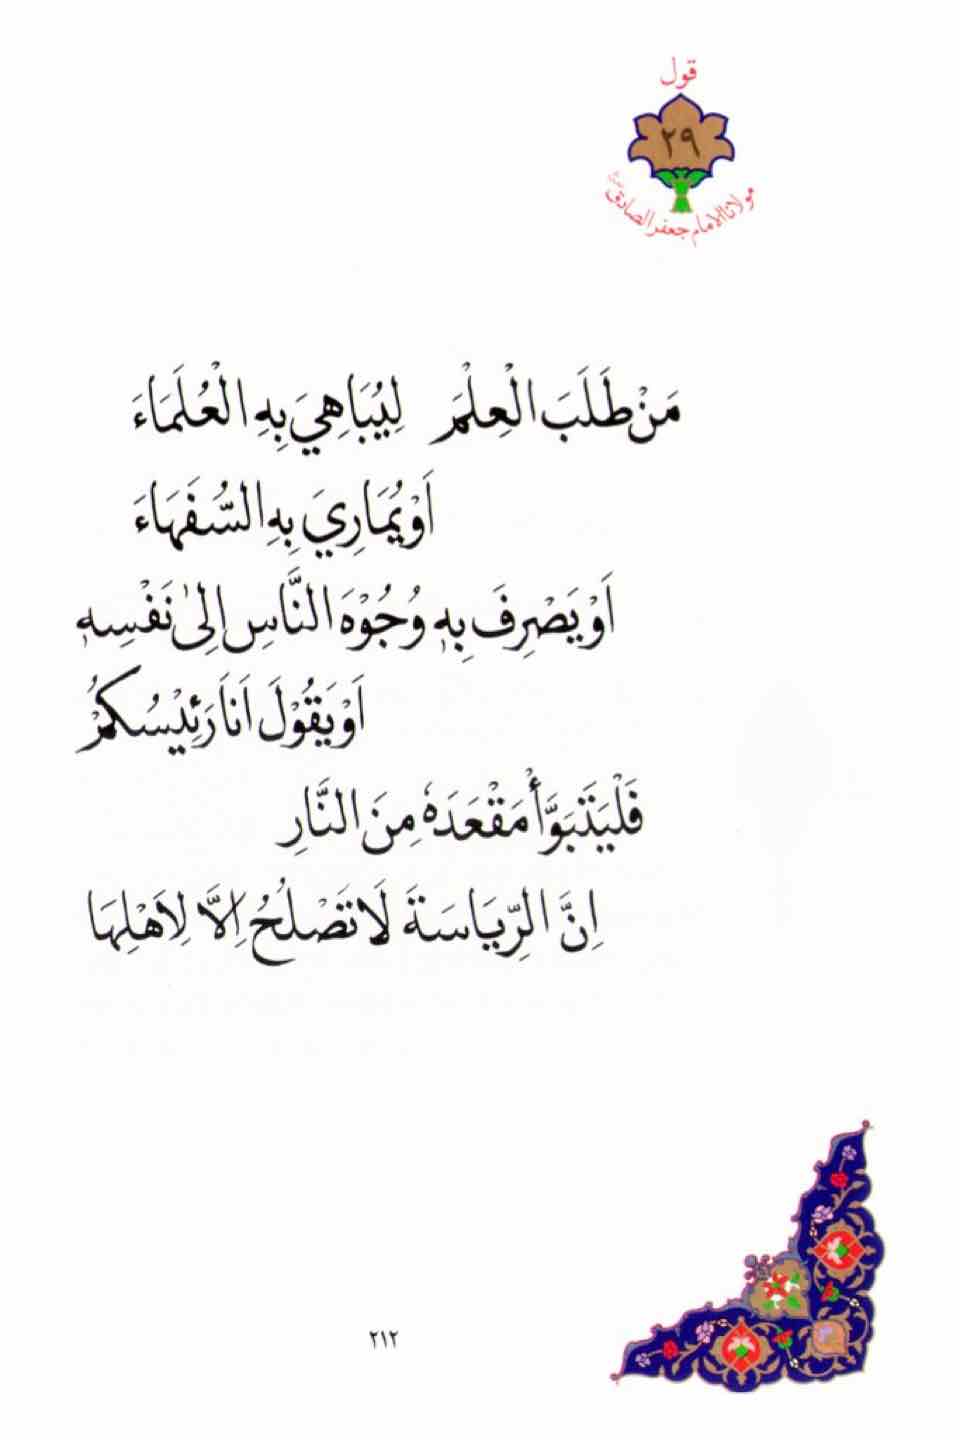 قول
٢٩
مولانا الامام جعفر الصادق
مَنْ طَلَبَ الْعِلْمَ لِيُبَاهِيَ بِهِ الْعُلَمَاءَ
اَوْ يُمَارِيَ بِهِ السُّفَهَاءَ
اَوْ يَصْرِفَ بِهٖ وُجُوْهَ النَّاسِ اِلىٰ نَفْسِهٖ
اَوْ يَقُوْلَ اَنَا رَئِيْسُكُمْ
فَلْيَتَبَوَّأْ مَقْعَدَهٗ مِنَ النَّارِ
اِنَّ الرِّيَاسَةَ لَا تَصْلُحُ اِلَّا لِاَهْلِهَا
٢١٢